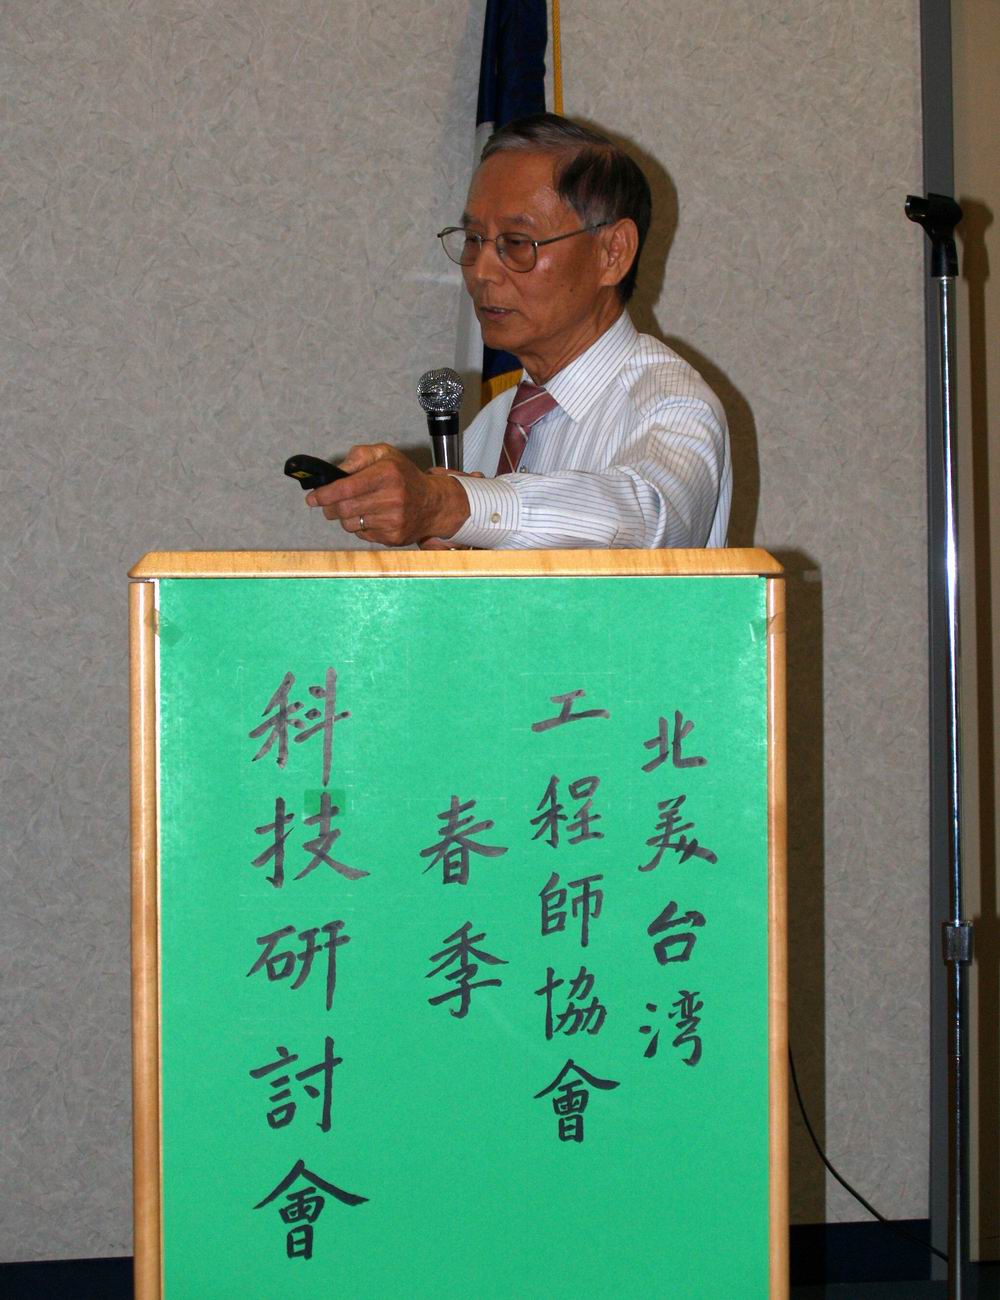 北美台湾
工程師協會
春季
科技研討會